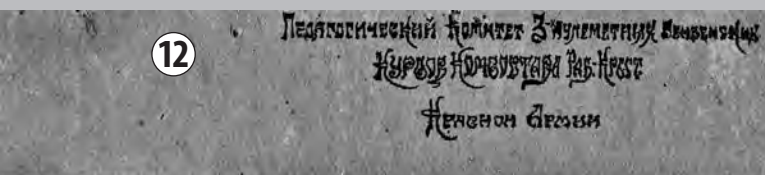 12
Педагогический Комитет 3 Пулеметных Пензенских
Курсов Комсостава Раб.-Крест
Красной Армии